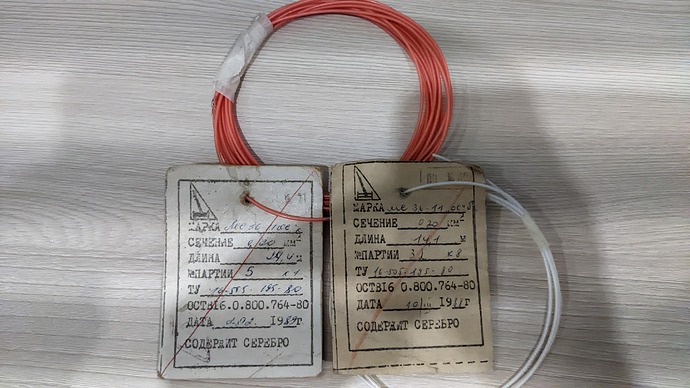 МАРКА
СЕЧЕНИЕ 0,20 мм²
ДЛИНА
№ПАРТИИ 5 к1
ТУ 16-505-195-80
ОСТВ16 0.800.764-80
ДАТА 1989г
СОДЕРЖИТ СЕРЕБРО
МАРКА МС 36-11
СЕЧЕНИЕ 0,20 мм²
ДЛИНА 14,1 м
№ПАРТИИ к8
ТУ 16-505-195-80
ОСТВ16 0.800.764-80
ДАТА 10/III 1989г
СОДЕРЖИТ СЕРЕБРО